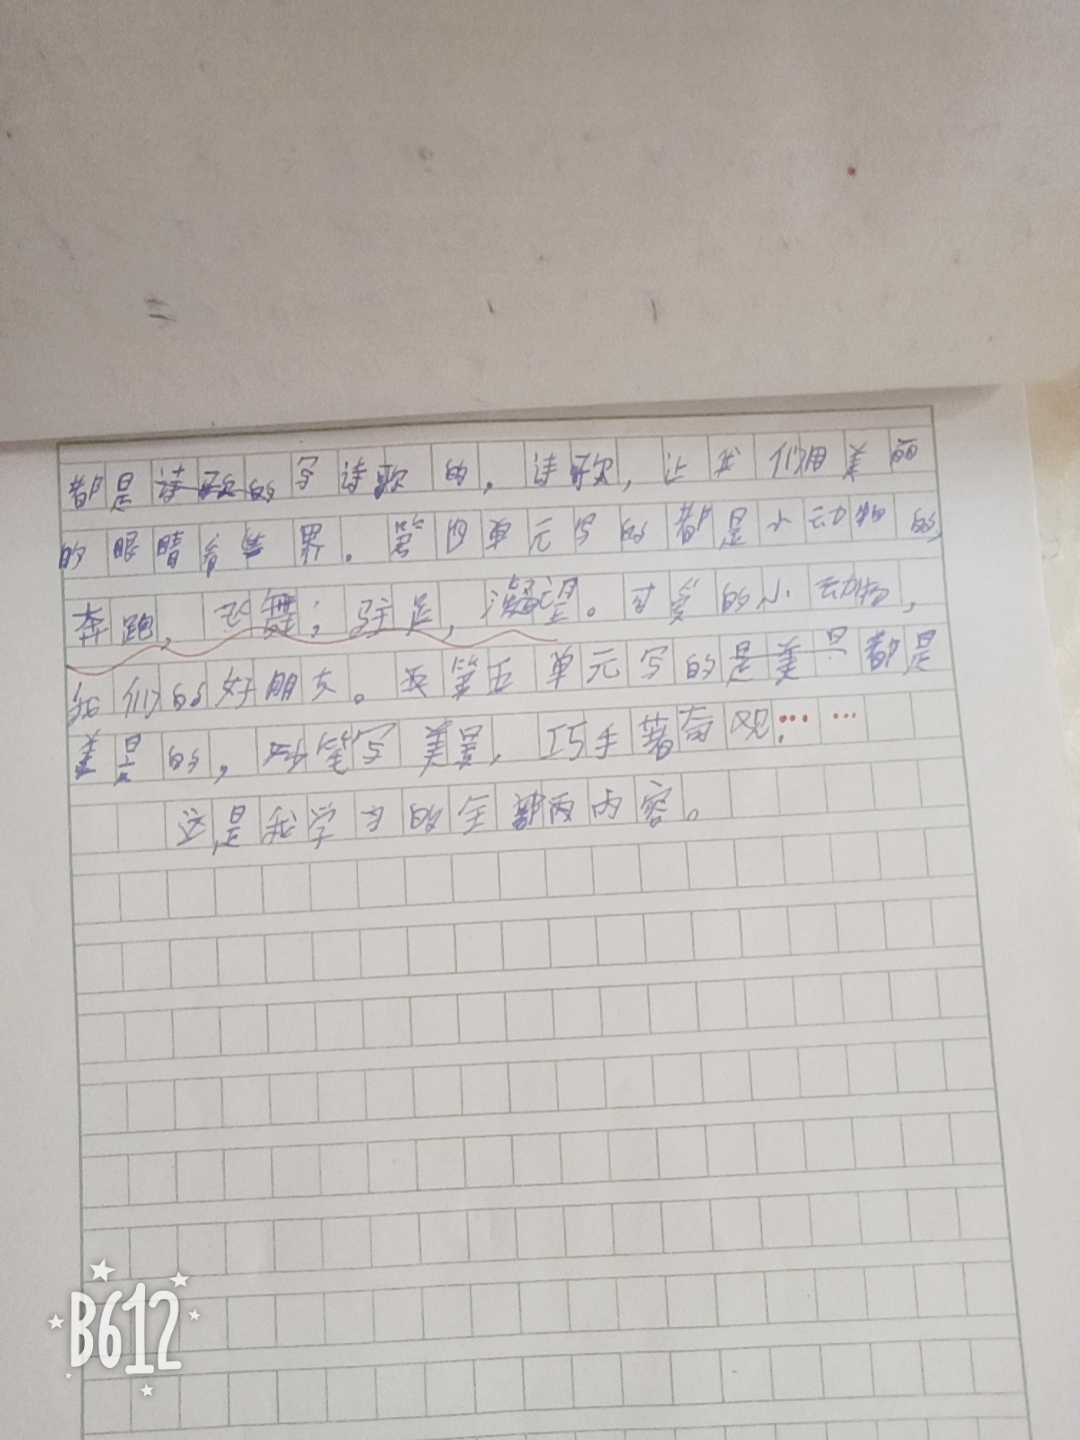 都是诗歌的写诗歌的。诗歌，让我们用美丽
的眼睛看世界。第四单元写的都是小动物的
奔跑，飞舞；驻足，凝望。可爱的小动物，
我们的好朋友。第五单元写的是美景都是
美景的，妙笔写美景，巧手著奇观……
这是我学习的全部内容。
B612